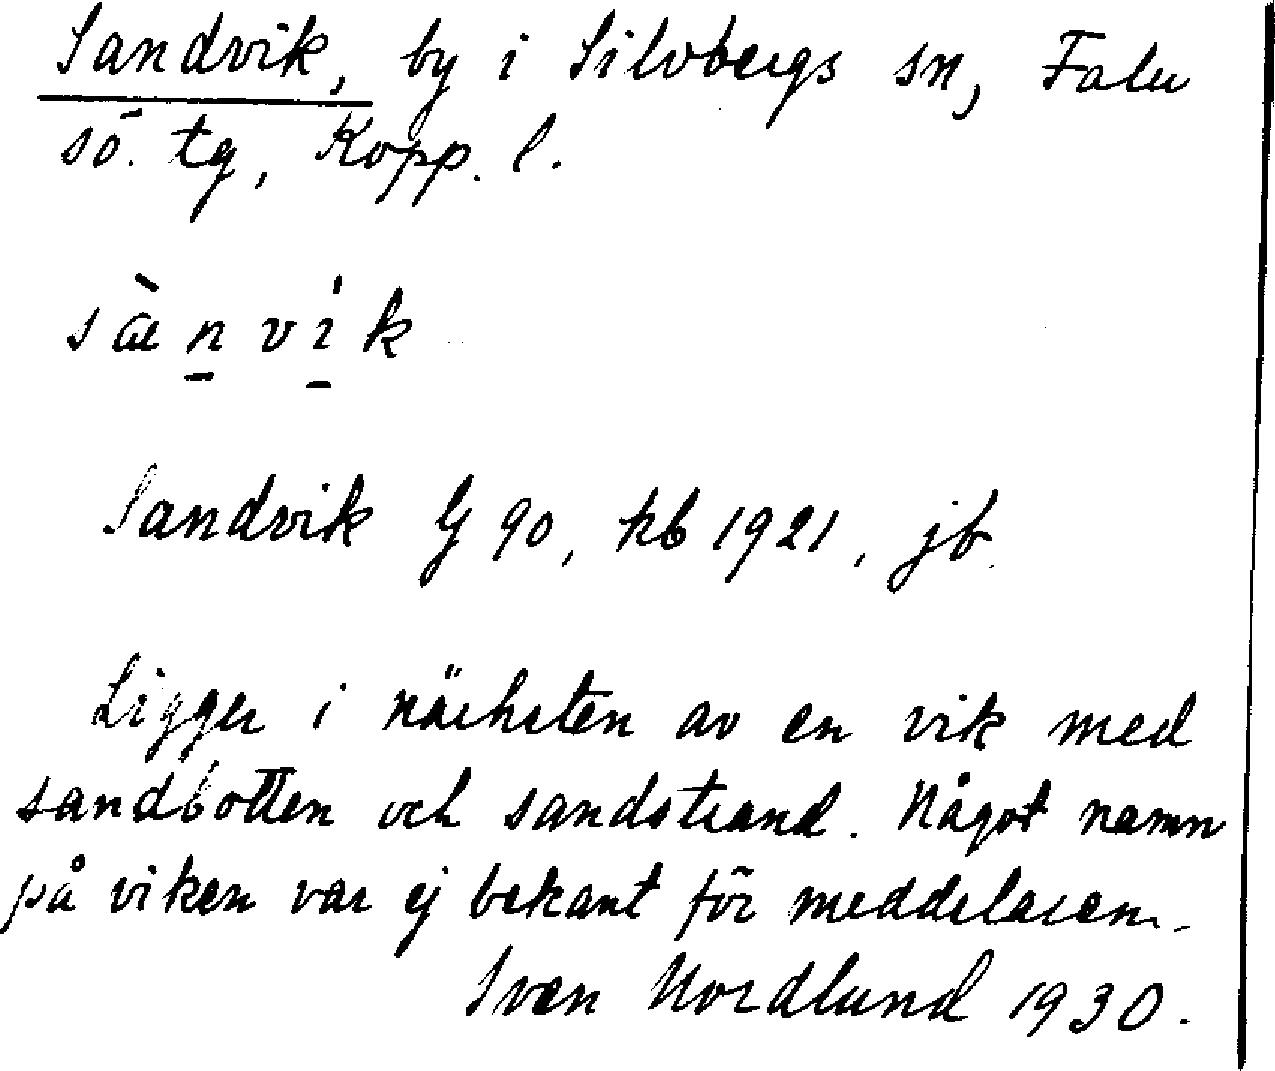 Sandvik, by i Silvbergs sn, Falu
sö. tg, Kopp. l.
sæ̀n̠vi̠̍k
Sandvik G 90, kb 1921, jb.
Ligger i närheten av en vik med
sandbotten och sandstrand. Något namn
på viken var ej bekant för meddelaren.
Sven Nordlund 1930.